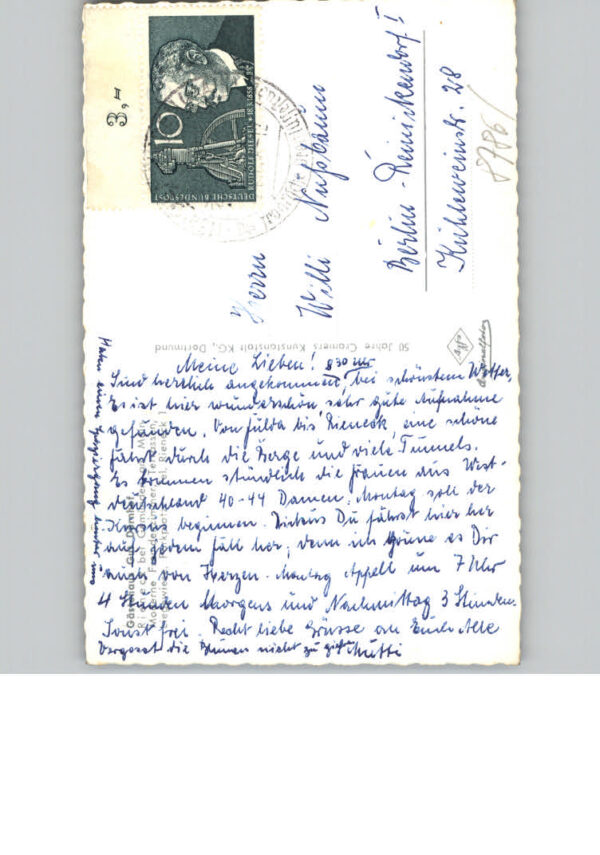 3,-
10
DEUTSCHE BUNDESPOST
RUDOLF DIESEL * 18.3.1858
Herrn
Willi Nußbaum
Berlin-Reinickendorf I
Kühleweinstr. 28
8786/
50 Jahre Cramers Kunstanstalt KG., Dortmund
Gästehaus Gut Dürnhof
Rieneck bei Gemünden am Main
Meine Lieben! 8 30 Uhr
Sind herzlich angekommen, bei schönstem Wetter,
Es ist hier wunderschön, sehr gute Aufnahme
gefunden. Von Fulda bis Rieneck, eine schöne
fahrt durch die Berge und viele Tunnels.
Es kommen stündlich die Frauen aus West-
deutschland 40-44 Damen. Montag soll der
Kursus beginnen. Du fährst hier her
auf jedem fall her, denn ich gönne es Dir
auch von Herzen. Montag Appell um 7 Uhr
4 Stunden Morgens und Nachmittag 3 Stunden
Sonst frei. Recht liebe Grüsse an Euch Alle
Vergesst die Blumen nicht zu gießen Mutti
Haben einen